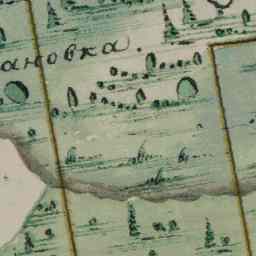 ановка.